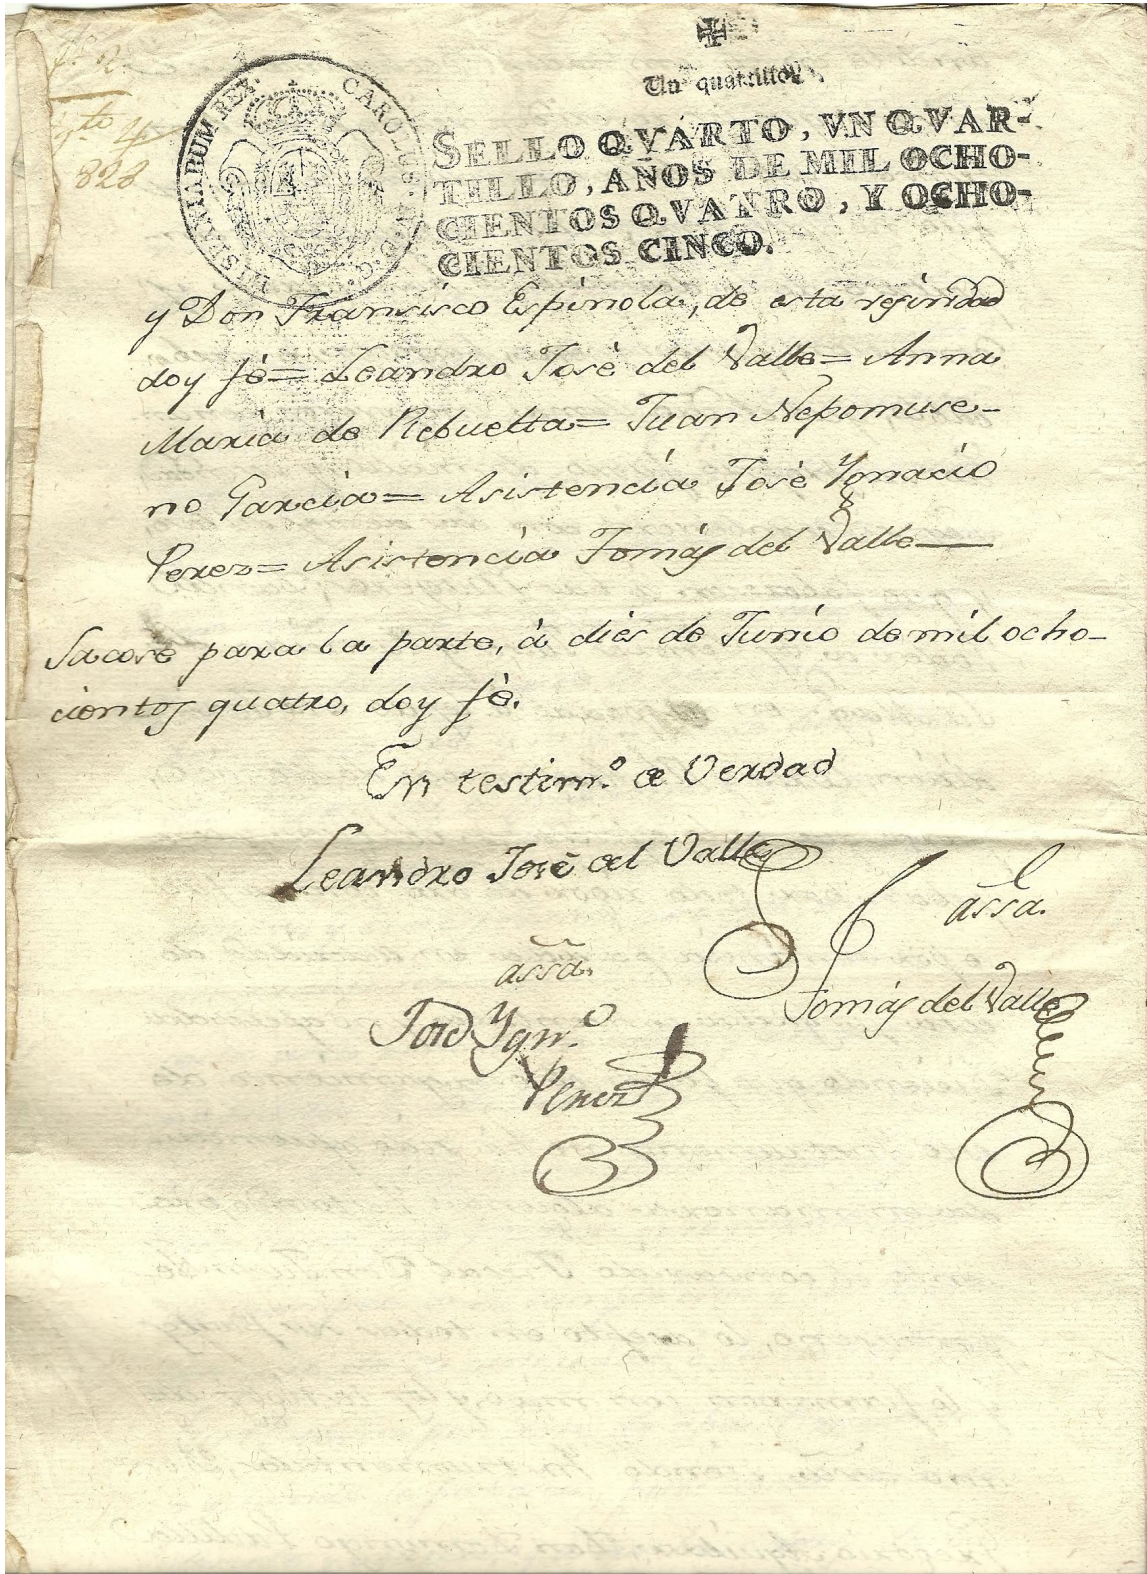 Un quartillo
HISPANIARUM REX
CAROLUS IV D. G.
SELLO QVARTO, VN QVAR-
TILLO, AÑOS DE MIL OCHO-
CIENTOS QVATRO, Y OCHO-
CIENTOS CINCO.
y Don Fransisco Espinola, de esta vesindad
doy fè= Leandro Josè del Valle= Anna
Maria de Rebuelta= Juan Nepomuse-
no Garcia= Asistencia Josè Ygnacio
Perez= Asistencia Tomás del Valle—
Sacose para la parte, à dies de Junio de mil ocho-
cientos quatro, doy fè.
En testim.º de Verdad
Leandro Josè del Valle
assa.
assa.
Tomás del Valle
Josè Ygn.º
Perez